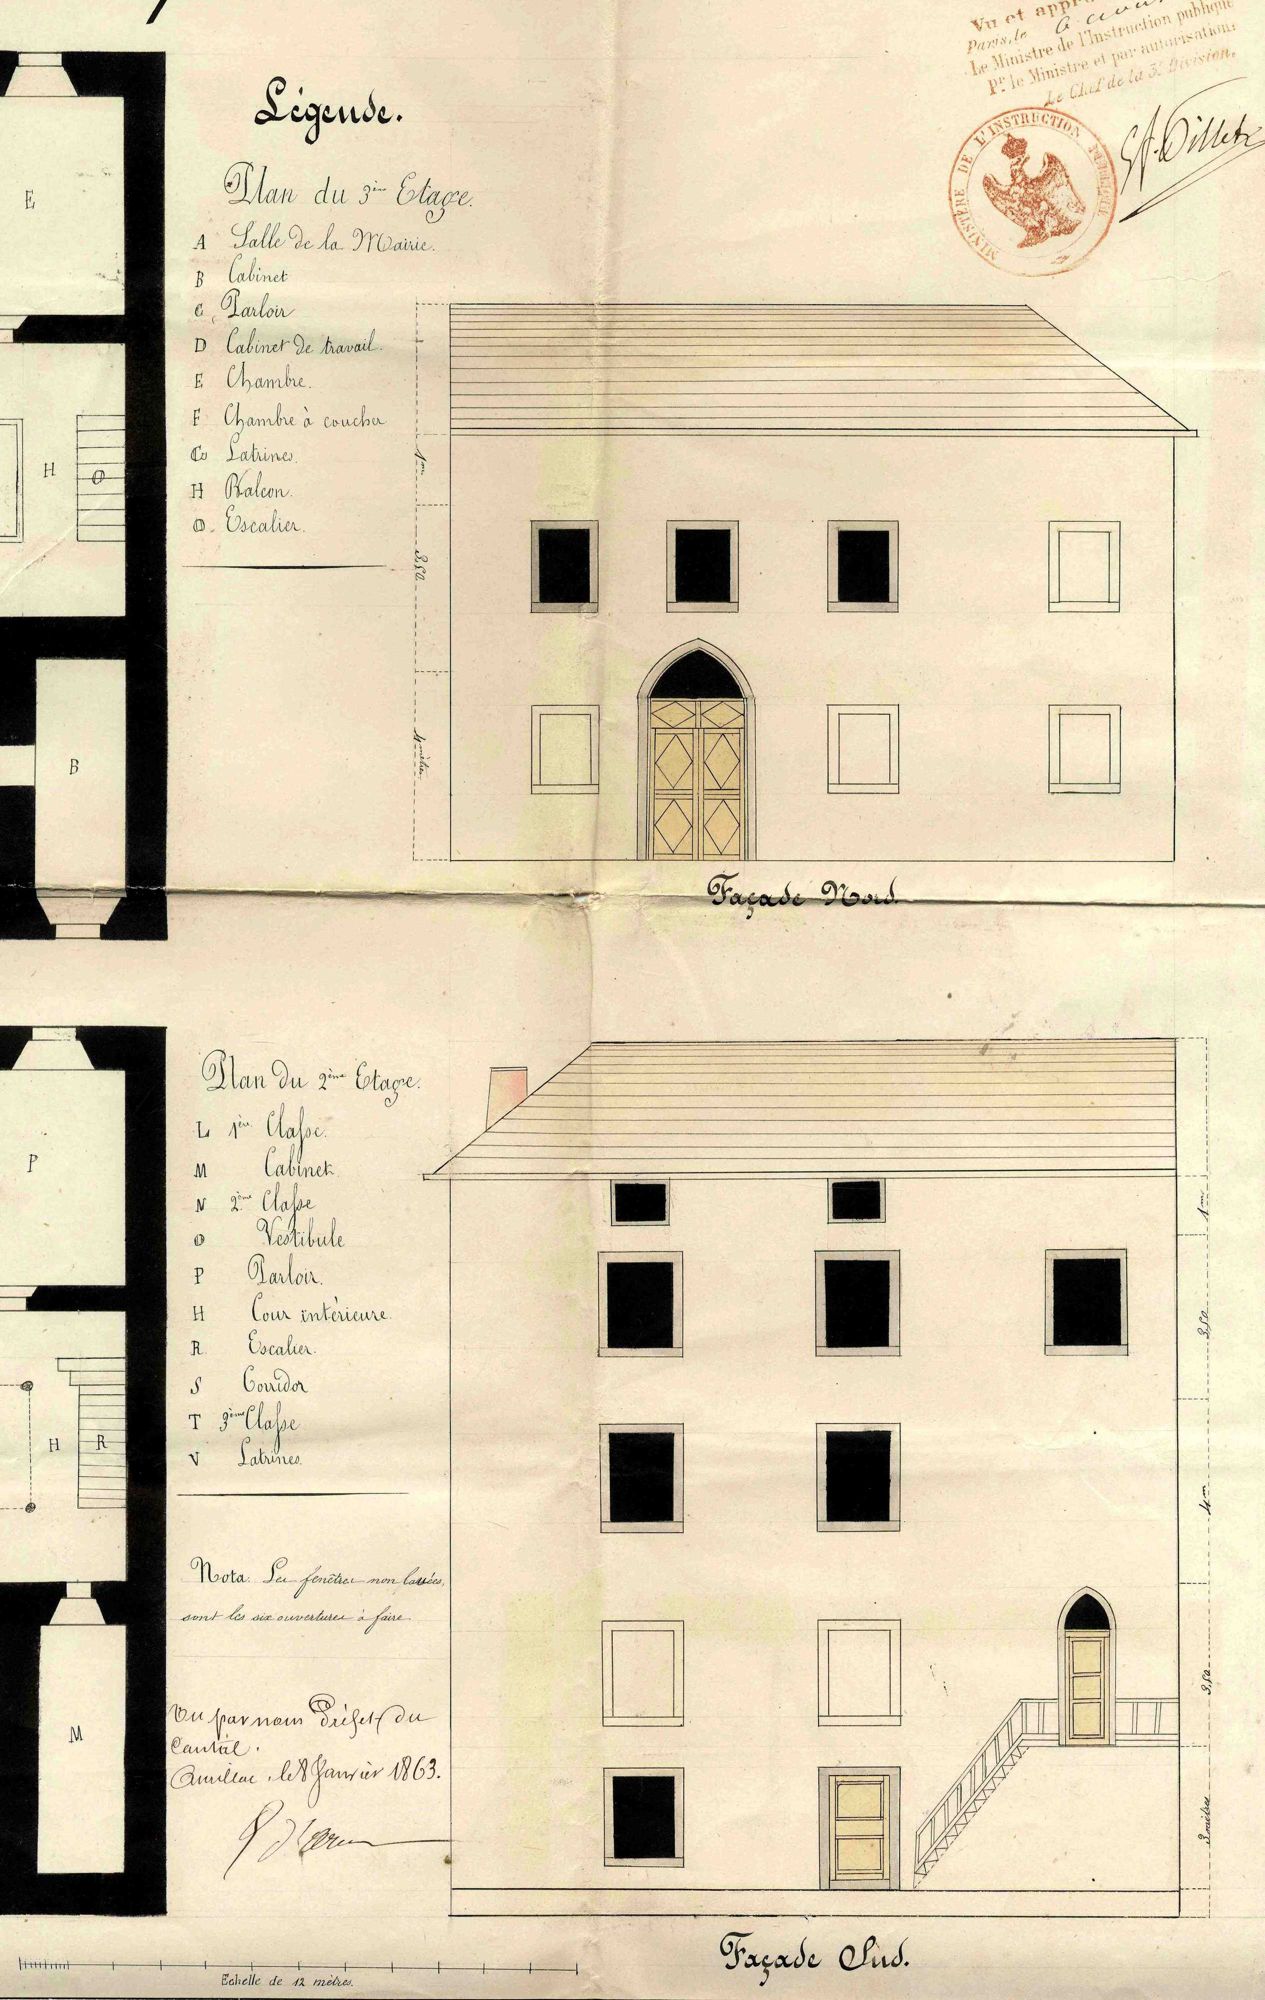 Vu et appro
Paris, le 6
Le Ministre de l'Instruction publique
Pr le Ministre et par autorisation:
Le Chef de la 3e Division.
MINISTÈRE DE L'INSTRUCTION PUBLIQUE
Légende.
Plan du 3ème Etage.
A Salle de la Mairie.
B Cabinet
C Parloir
D Cabinet de travail.
E Chambre.
F Chambre à coucher
G Latrines.
H Balcon.
O Escalier.
E
H
O
B
1m
3,50
4 mètres
Façade Nord.
Plan du 2ème Etage.
L 1ère Classe.
M Cabinet.
N 2ème Classe
O Vestibule
P Parloir.
H Cour intérieure.
R Escalier.
S Corridor
T 3ème Classe
V Latrines.
P
H
R
M
Nota. Les fenêtres non lavées,
sont les six ouvertures à faire
Vu par nous Préfet du
Cantal.
Aurillac, le 8 Janvier 1863.
1m
3,50
4m
3,50
3 mètres
Façade Sud.
Echelle de 12 mètres.